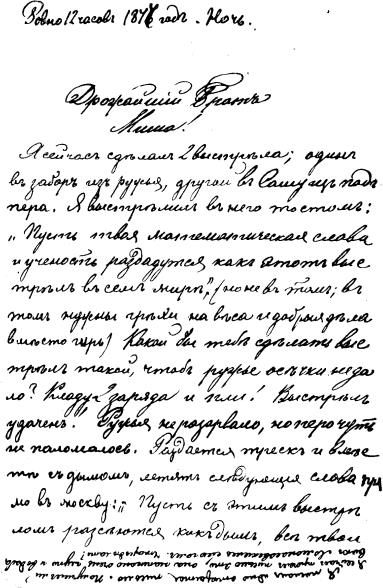 Ровно 12 часовъ 1877 годъ. Ночь.
Дрожайшiй Братъ
Миша!
Я сейчасъ сдѣлалъ 2 выстрѣла; одинъ
въ заборъ изъ ружья, другой въ Сашу изъ подъ
пера. Я выстрѣлилъ въ него тостомъ:
„Пусть твая математическая слава
и ученость раздадутся какъ этотъ выс
трѣлъ въ семъ мирѣ", (но не въ томъ; въ
томъ нужны грѣхи на вѣса и добрыя дѣла
вмѣсто гирь) Какой бы тебѣ сдѣлать выс
трѣлъ такой, чтобъ ружье осѣчки не да
ло? Кладу 2 заряда и пли! Выстрѣлъ
удаченъ! Ружья не розарвало, но перо чуть
не поломалось. Раздается трескъ и вмѣс
тѣ съ дымомъ, летятъ слѣдующiя слова пря
мо въ москву: „Пусть съ этимъ выстрѣ
ломъ разсѣются какъ дымъ, всѣ твои